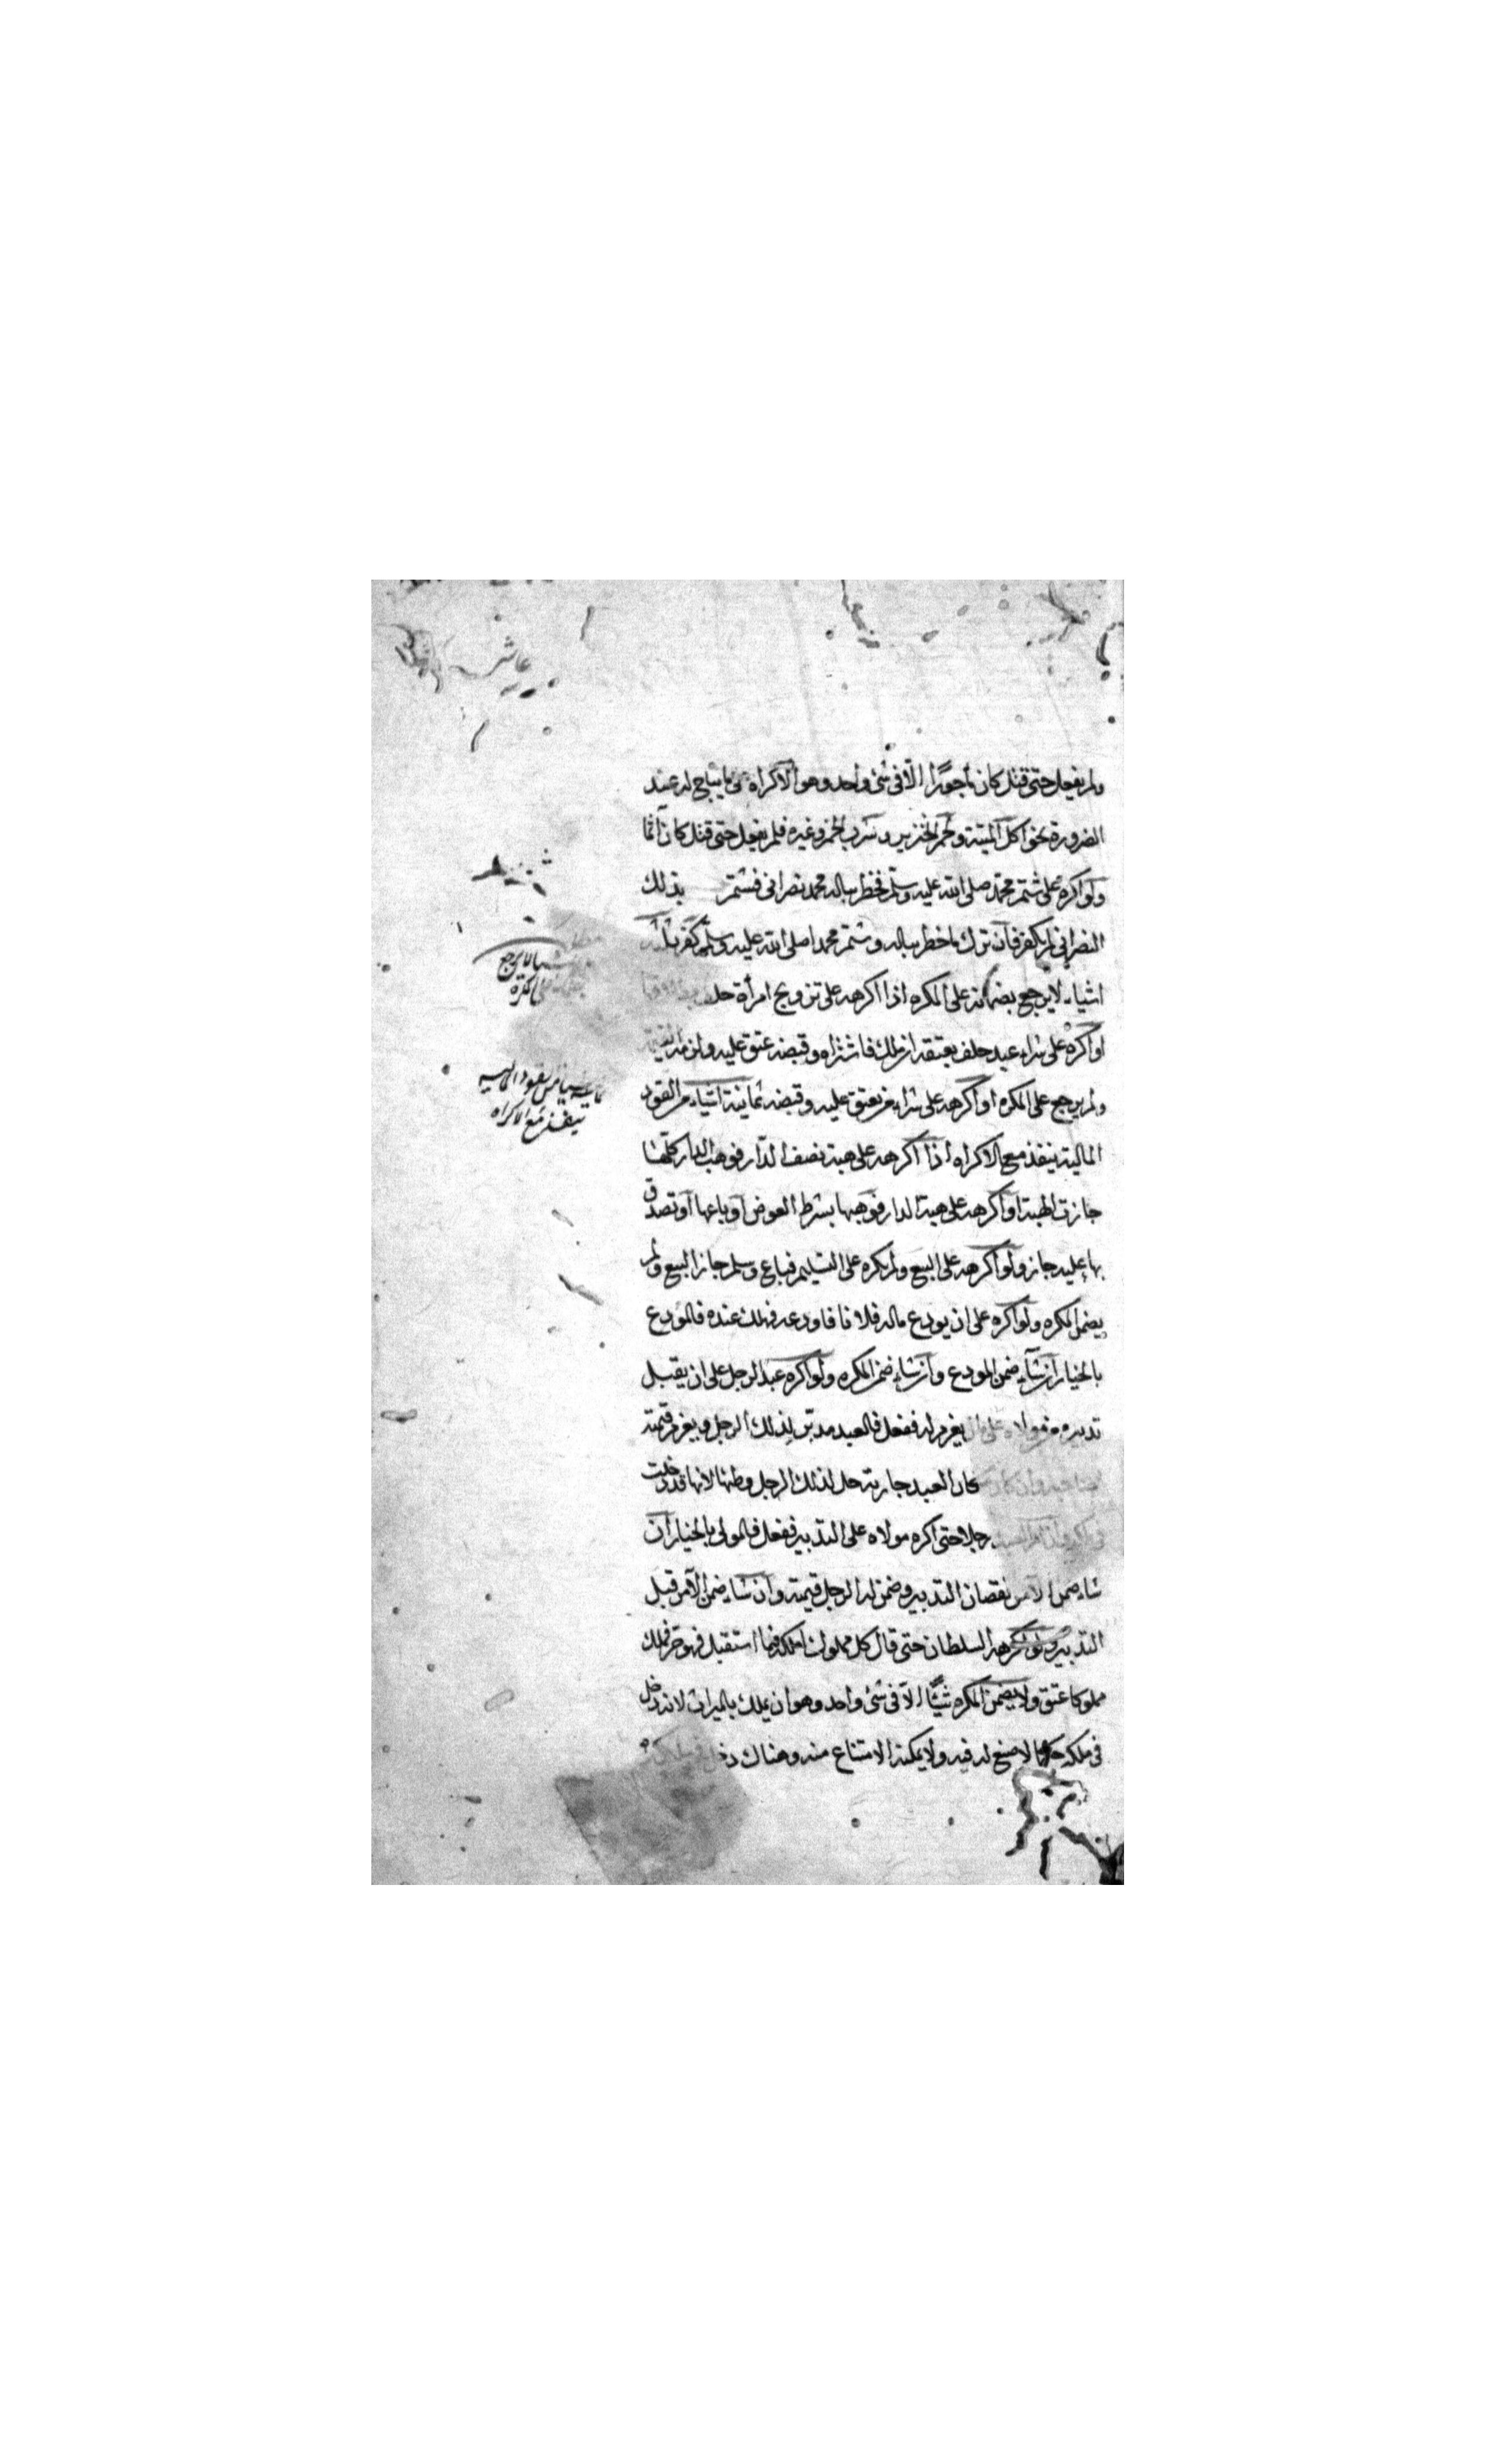 عاشر
ولم يفعل حتى قتل كان مأجورًا الّا فى شئ واحد وهو الاكراه على ما يباح له عند
الضرورة نحو اكل الميتة ولحم الخنزير وشرب الخمر وغيره فلم يفعل حتى قتل كان آثما
ولو اكره على شتم محمد صلى الله عليه وسلم فخطر بباله محمد نصرانى فشتم بذلك
النصرانى لم يكفر فان ترك ما خطر بباله وشتم محمدا صلى الله عليه وسلم كفر ثلثة
اشياء لا يرجع بضمانه على المكره اذا اكرهه على تزويج امرأة حلف
او اكره على شراء عبد حلف بعتقه ان ملك فاشتراه وقبضه عتق عليه ولزمه القيمة
ولم يرجع على المكره او اكرهه على شراء من يعتق عليه وقبضه ثمانية اشياء من العقود
المالية ينفذ مع الاكراه اذا اكرهه على هبة نصف الدّار فوهب الدار كلّها
جازت الهبة او اكرهه على هبة الدار فوهبها بشرط العوض او باعها او تصدق
بها عليه جاز ولو اكرهه على البيع ولم يكره على التسليم فباع وسلم جاز البيع ولم
يضمن المكره ولو اكره على ان يودع ماله فلانا فاودعه فهلك عنده فالمودع
بالخيار ان شاء ضمن المودع وان شاء ضمن المكره ولو اكره عبد الرجل على ان يقبل
تدبيره من مولاه على ان يغرم له ففعل فالعبد مدبّر لذلك الرجل ويغرم قيمته
وان كان العبد جارية حل لذلك الرجل وطئها لانها قد دخلت
رجلا حتى اكره مولاه على التدبير ففعل فالمولى بالخيار ان
شاء ضمن الآمر نقصان التدبير وضمن له الرجل قيمته وان شاء ضمن الآمر قبل
التدبير ولو اكرهه السلطان حتى قال كل مملوك املكه فيما استقبل فهو حر فملك
مملوكا عتق ولا يضمن المكره شيئًا الّا فى شئ واحد وهو ان يملك بالميراث لانه دخل
فى ملكه حكما لا صنع له فيه ولا يمكنه الامتناع منه وهناك دخل
لا يرجع
المكره
ينفذ مع الاكراه